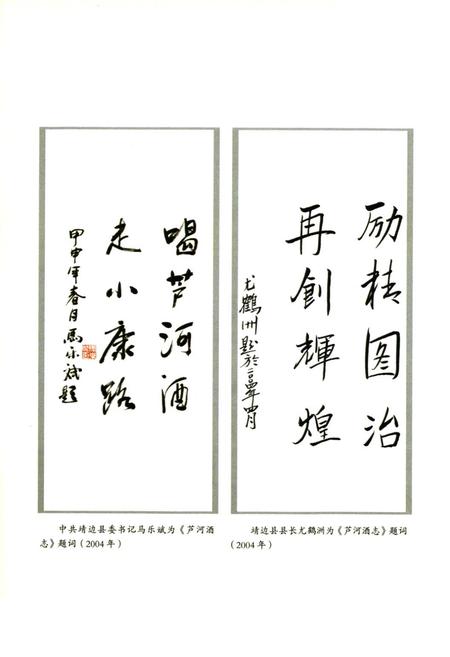 励精图治
再創輝煌
尤鶴洲题於二〇〇四年四月
喝芦河酒
走小康路
甲申年春月馬乐斌题
中共靖边县委书记马乐斌为《芦河酒
志》题词(2004年)
靖边县县长尤鹤洲为《芦河酒志》题词
(2004年)